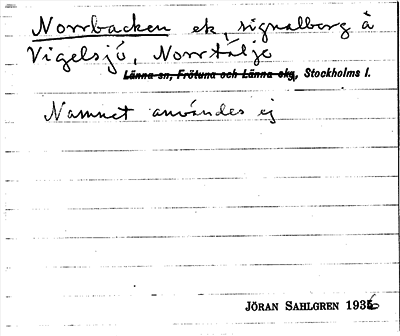 Norrbacken ek, signalberg å
Vigelsjö, Norrtälje
Länna sn, Frötuna och Länna skg, Stockholms l.
Namnet användes ej
JÖRAN SAHLGREN 1936